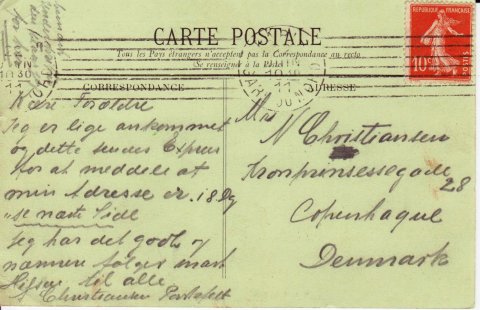 CARTE POSTALE
Tous les Pays étrangers n'acceptent pas la Correspondance au recto
Se renseigner à la Poste
RÉPUBLIQUE FRANÇAISE
10c
POSTES
PARIS
CORRESPONDANCE
Kære Forældre
Jeg er lige ankommet
og dette sendes Expres
for at meddele at
min Adresse er. 18
se næste Side
Jeg har det godt og
nærmere følger snart
Hilsen til alle
Christiansen
ADRESSE
Mr
N Christiansen
Kronprinsessegade
28
Copenhague
Denmark